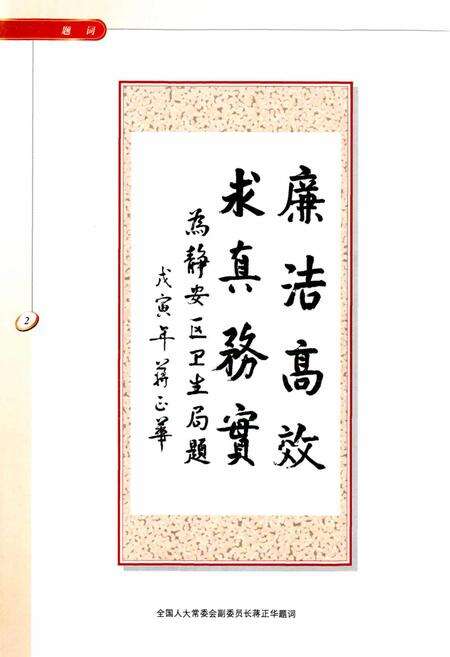 题 词
廉洁高效
求真務實
為静安区卫生局題
戊寅年蒋正華
2
全国人大常委会副委员长蒋正华题词